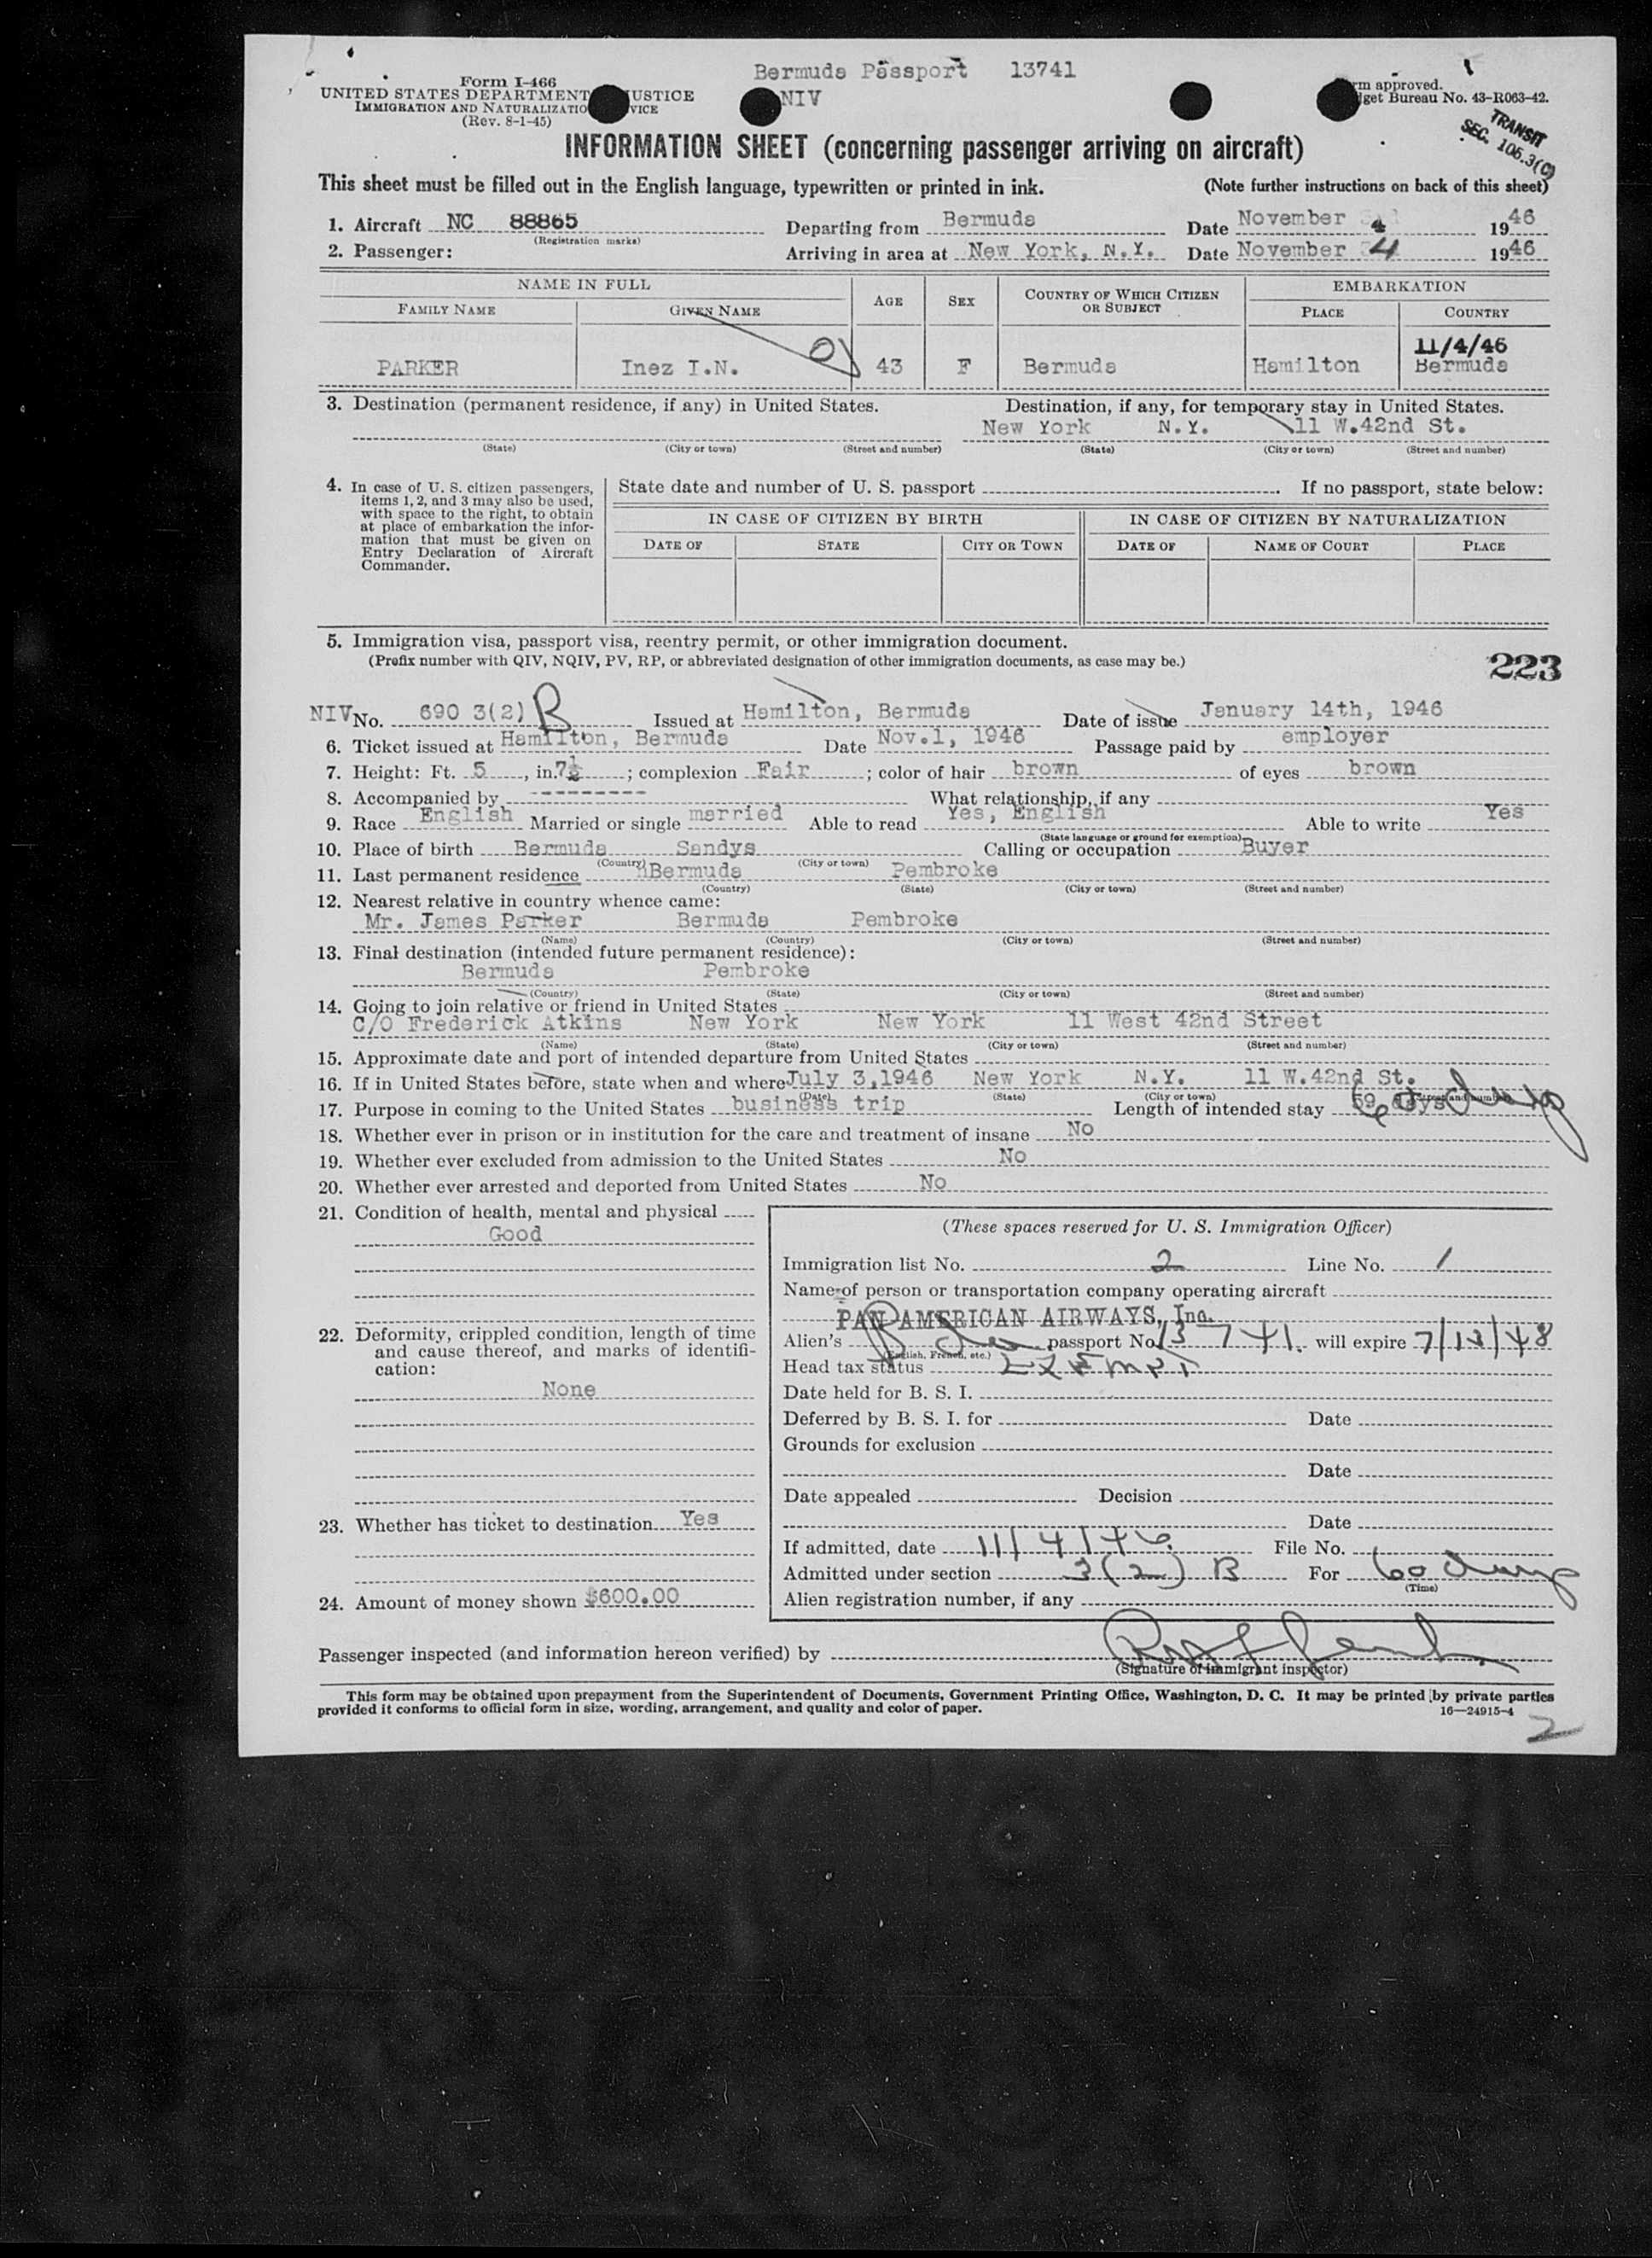 Bermuda Passport 13741
NIV
Form I-466
UNITED STATES DEPARTMENT USTICE
IMMIGRATION AND NATURALIZATIO VICE
(Rev. 8-1-45)
rm approved.
get Bureau No. 43-R063-42.
TRANSIT
SEC. 106.3(C)
INFORMATION SHEET (concerning passenger arriving on aircraft)
This sheet must be filled out in the English language, typewritten or printed in ink. (Note further instructions on back of this sheet)
1. Aircraft NC 88865 Departing from Bermuda Date November 4 1946
(Registration marks)
2. Passenger: Arriving in area at New York, N.Y. Date November 4 1946
NAME IN FULL AGE SEX COUNTRY OF WHICH CITIZEN OR SUBJECT EMBARKATION
FAMILY NAME GIVEN NAME PLACE COUNTRY
11/4/46
PARKER Inez I.N. 43 F Bermuda Hamilton Bermuda
3. Destination (permanent residence, if any) in United States. Destination, if any, for temporary stay in United States.
New York N.Y. 11 W.42nd St.
(State) (City or town) (Street and number) (State) (City or town) (Street and number)
4. In case of U. S. citizen passengers, items 1, 2, and 3 may also be used, with space to the right, to obtain at place of embarkation the information that must be given on Entry Declaration of Aircraft Commander.
State date and number of U. S. passport . If no passport, state below:
IN CASE OF CITIZEN BY BIRTH IN CASE OF CITIZEN BY NATURALIZATION
DATE OF STATE CITY OR TOWN DATE OF NAME OF COURT PLACE
5. Immigration visa, passport visa, reentry permit, or other immigration document.
(Prefix number with QIV, NQIV, PV, RP, or abbreviated designation of other immigration documents, as case may be.)
223
NIV No. 690 3(2) B Issued at Hamilton, Bermuda Date of issue January 14th, 1946
6. Ticket issued at Hamilton, Bermuda Date Nov.1, 1946 Passage paid by employer
7. Height: Ft. 5, in. 7½; complexion Fair; color of hair brown of eyes brown
8. Accompanied by --------- What relationship, if any
9. Race English Married or single married Able to read Yes, English Able to write Yes
(State language or ground for exemption)
10. Place of birth Bermuda Sandys Calling or occupation Buyer
(Country) (City or town)
11. Last permanent residence Bermuda Pembroke
(Country) (State) (City or town) (Street and number)
12. Nearest relative in country whence came:
Mr. James Parker Bermuda Pembroke
(Name) (Country) (City or town) (Street and number)
13. Final destination (intended future permanent residence):
Bermuda Pembroke
(Country) (State) (City or town) (Street and number)
14. Going to join relative or friend in United States
C/O Frederick Atkins New York New York 11 West 42nd Street
(Name) (State) (City or town) (Street and number)
15. Approximate date and port of intended departure from United States
16. If in United States before, state when and where July 3,1946 New York N.Y. 11 W.42nd St.
(Date) (State) (City or town) (Street and number)
17. Purpose in coming to the United States business trip Length of intended stay 60 days
18. Whether ever in prison or in institution for the care and treatment of insane No
19. Whether ever excluded from admission to the United States No
20. Whether ever arrested and deported from United States No
21. Condition of health, mental and physical
Good
22. Deformity, crippled condition, length of time and cause thereof, and marks of identification:
None
23. Whether has ticket to destination Yes
24. Amount of money shown $600.00
(These spaces reserved for U. S. Immigration Officer)
Immigration list No. 2 Line No. 1
Name of person or transportation company operating aircraft
PAN AMERICAN AIRWAYS, Inc.
Alien's passport No. 13741. will expire 7/13/48
(English, French, etc.)
Head tax status EXEMPT
Date held for B. S. I.
Deferred by B. S. I. for Date
Grounds for exclusion
Date
Date appealed Decision
Date
If admitted, date 11/4/46. File No.
Admitted under section 3(2) B For 60 days
(Time)
Alien registration number, if any
Passenger inspected (and information hereon verified) by
(Signature of immigrant inspector)
This form may be obtained upon prepayment from the Superintendent of Documents, Government Printing Office, Washington, D. C. It may be printed by private parties
provided it conforms to official form in size, wording, arrangement, and quality and color of paper. 16—24915-4
2